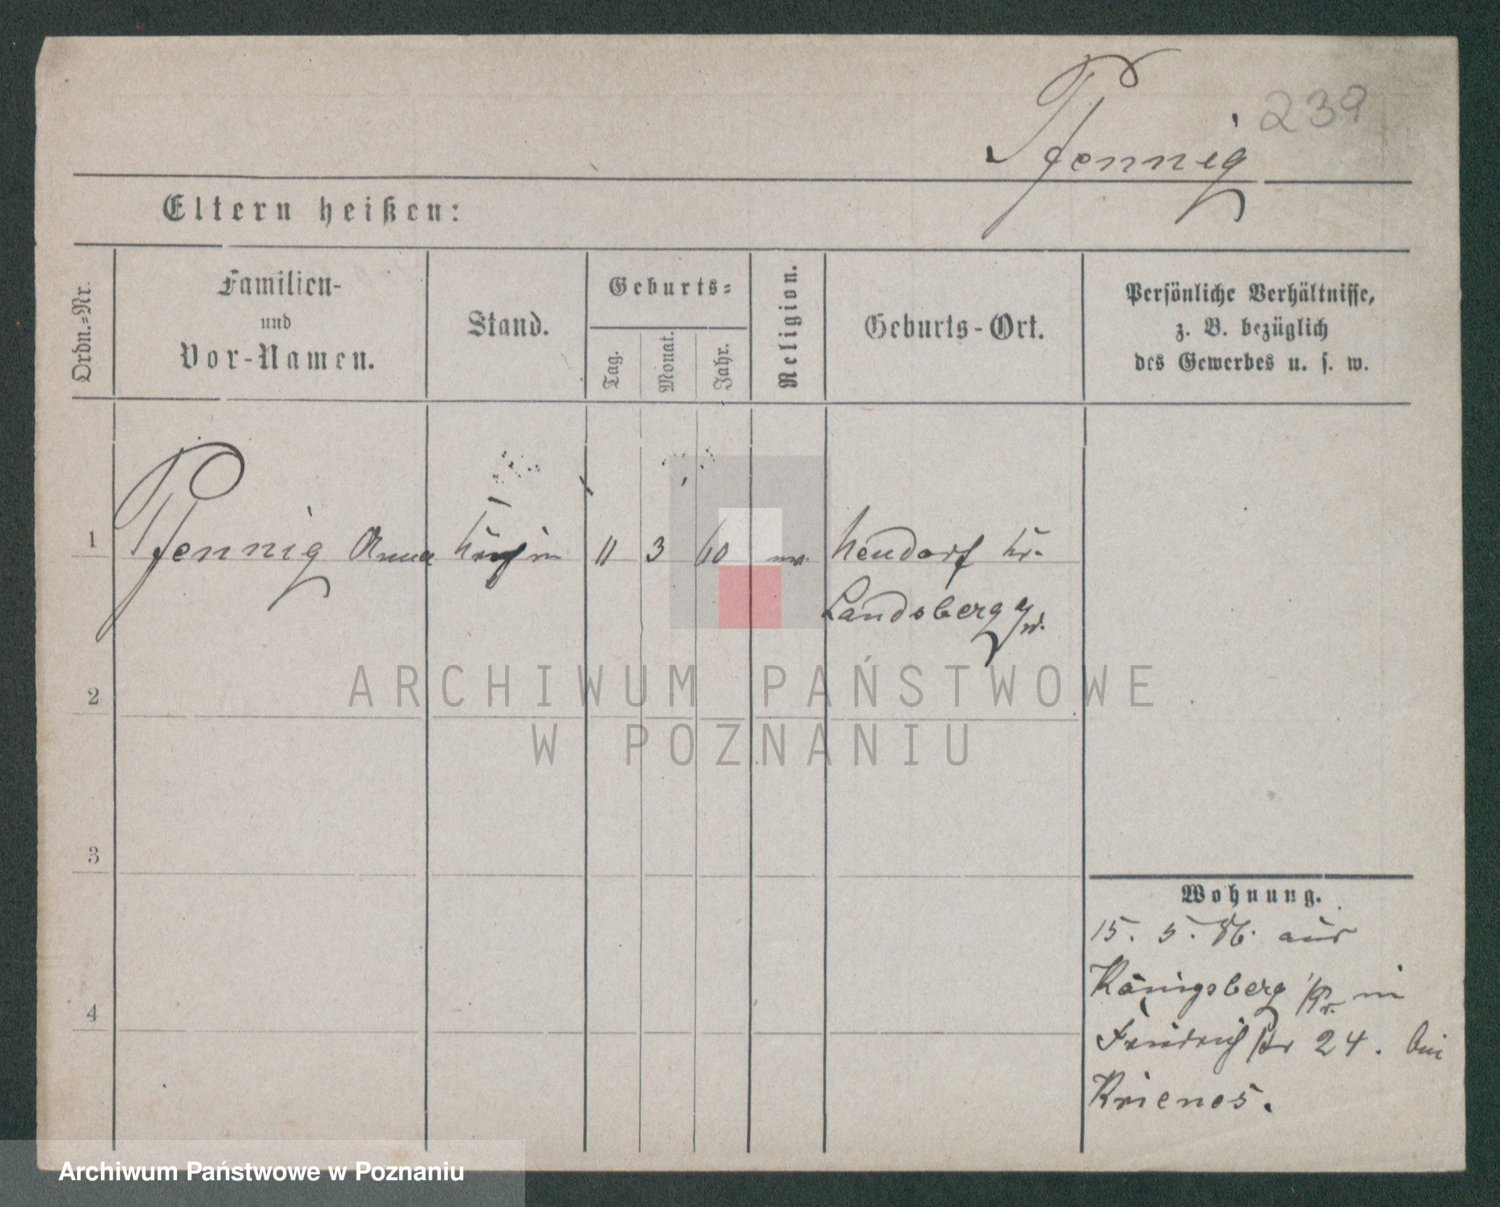 Pfennig 239
Eltern heißen:
Ordn.-Nr.
Familien-
und
Vor-Namen.
Stand.
Geburts-
Tag.
Monat.
Jahr.
Religion.
Geburts-Ort.
Persönliche Verhältnisse,
z. B. bezüglich
des Gewerbes u. s. w.
1 Pfennig Anna Köchin 11 3 60 ev. Neudorf Kr.
Landsberg a/W.
2
3
4
Wohnung.
15. 5. 86. aus
Königsberg i/Pr. in
Friedrichstr 24. bei
Krienes.
ARCHIWUM PAŃSTWOWE
W POZNANIU
Archiwum Państwowe w Poznaniu